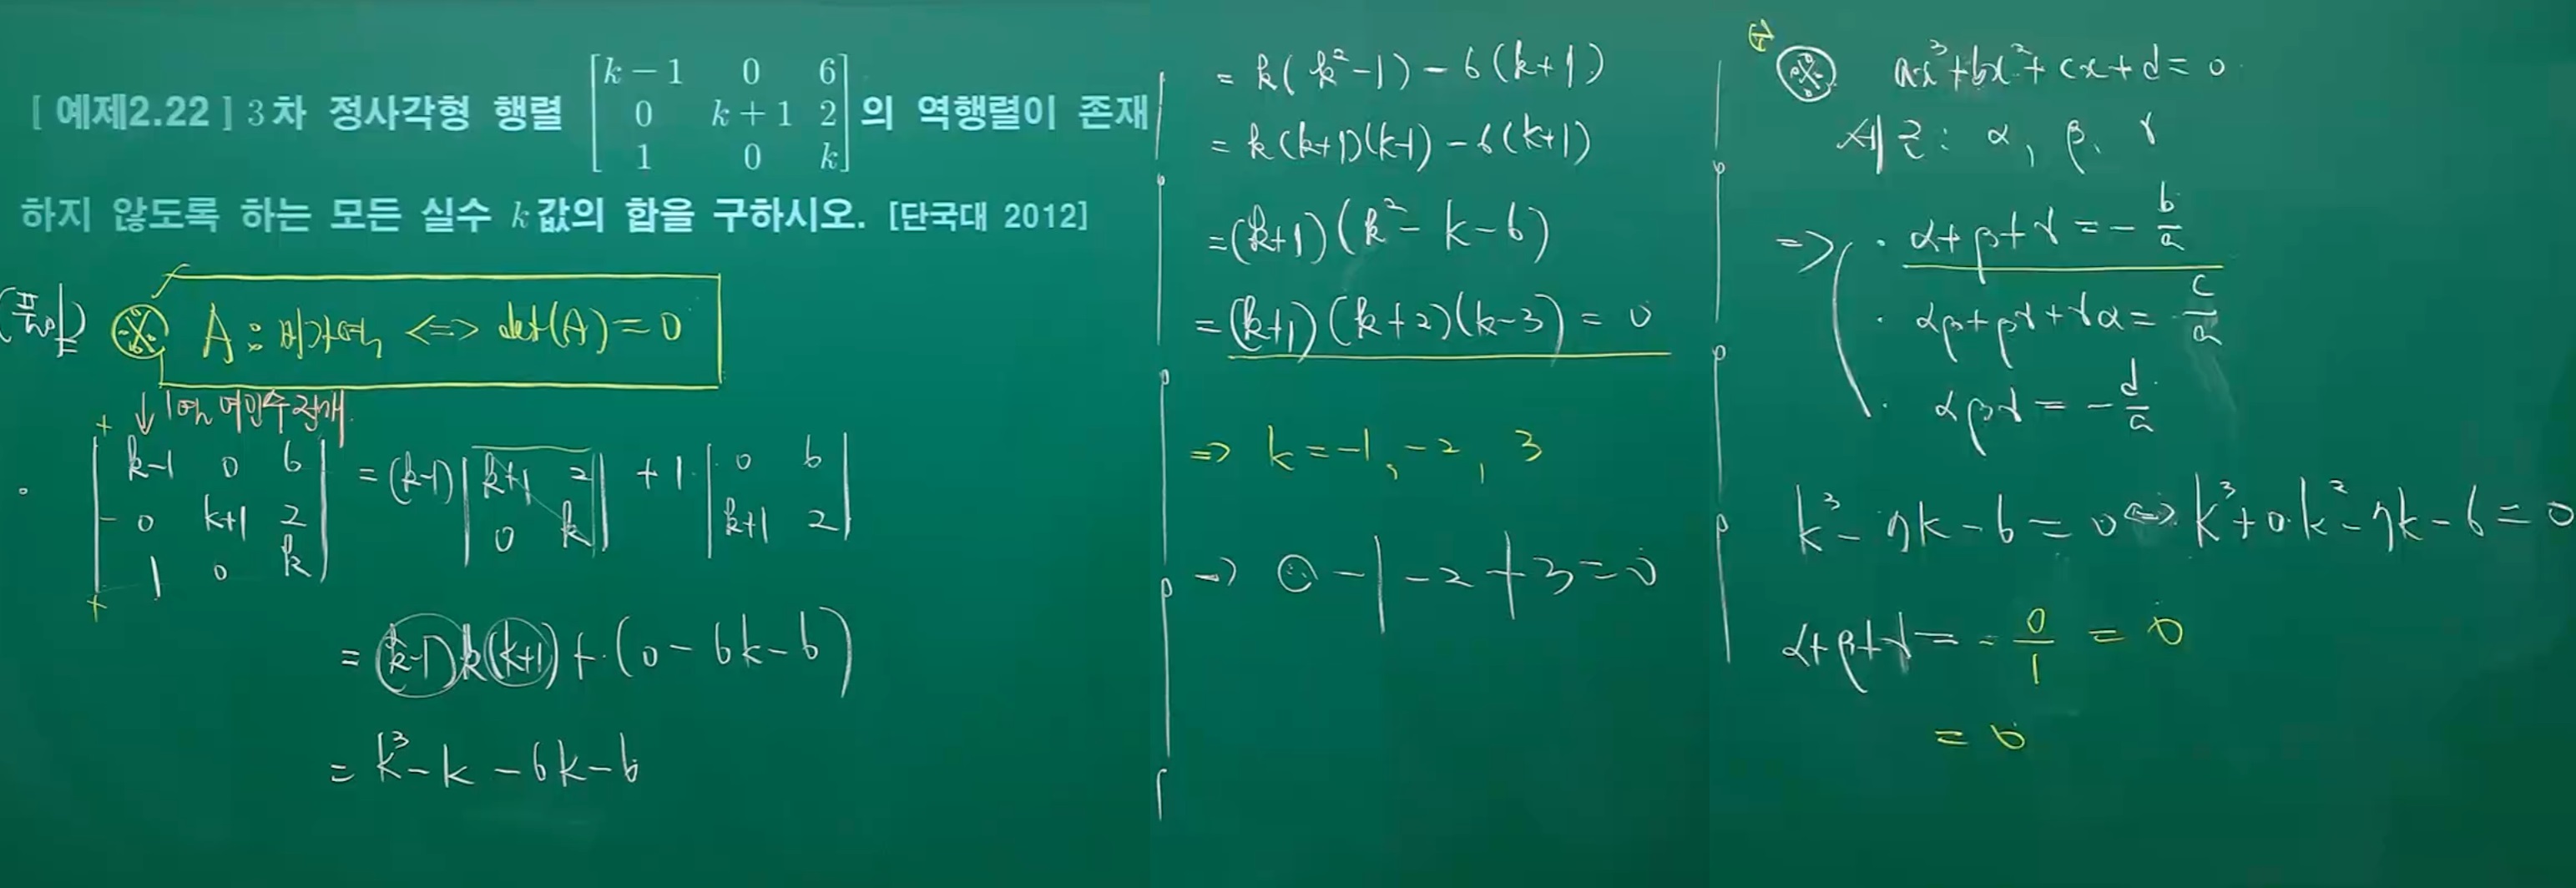 [ 예제2.22 ] 3차 정사각형 행렬 [k−1 0 6; 0 k+1 2; 1 0 k] 의 역행렬이 존재
하지 않도록 하는 모든 실수 k값의 합을 구하시오. [단국대 2012]
(풀이) ※ A : 비가역 <=> det(A) = 0
↓ 1열 여인수 전개
· |k-1 0 6; 0 k+1 2; 1 0 k| = (k-1)|k+1 2; 0 k| + 1·|0 6; k+1 2|
= (k-1)k(k+1) + (0-6k-6)
= k³-k-6k-6
= k(k²-1)-6(k+1)
= k(k+1)(k-1)-6(k+1)
=(k+1)(k²-k-6)
=(k+1)(k+2)(k-3) = 0
=> k=-1, -2, 3
→ ⊙ -1-2+3=0
※ ax³+bx²+cx+d=0
세근: α, β, γ
=> · α+β+γ=-b/a
· αβ+βγ+γα=c/a
· αβγ=-d/a
k³-7k-6=0 <=> k³+0·k²-7k-6=0
α+β+γ=-0/1=0
=0